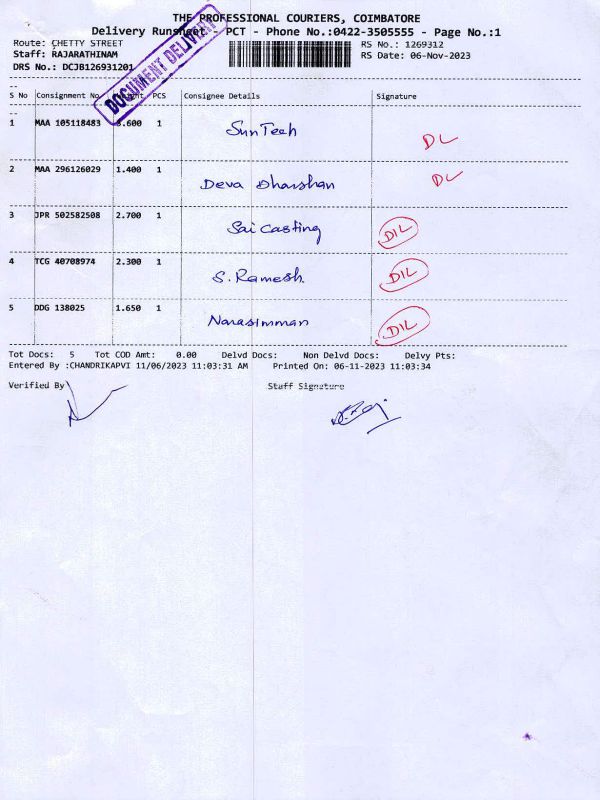 THE PROFESSIONAL COURIERS, COIMBATORE
Delivery Runsheet - PCT - Phone No.:0422-3505555 - Page No.:1
Route: CHETTY STREET
RS No.: 1269312
Staff: RAJARATHINAM
RS Date: 06-Nov-2023
DRS No.: DCJB126931201
DOCUMENT DELIVERY
S No Consignment No PCS Consignee Details Signature
1 MAA 105118483 .600 1 SunTech DL
2 MAA 296126029 1.400 1 Deva Dharshan DL
3 JPR 502582508 2.700 1 Sai Casting DIL
4 TCG 40708974 2.300 1 S. Ramesh. DIL
5 DDG 138025 1.650 1 Narasimman DIL
Tot Docs: 5 Tot COD Amt: 0.00 Delvd Docs: Non Delvd Docs: Delvy Pts:
Entered By :CHANDRIKAPVI 11/06/2023 11:03:31 AM Printed On: 06-11-2023 11:03:34
Verified By Staff Signature